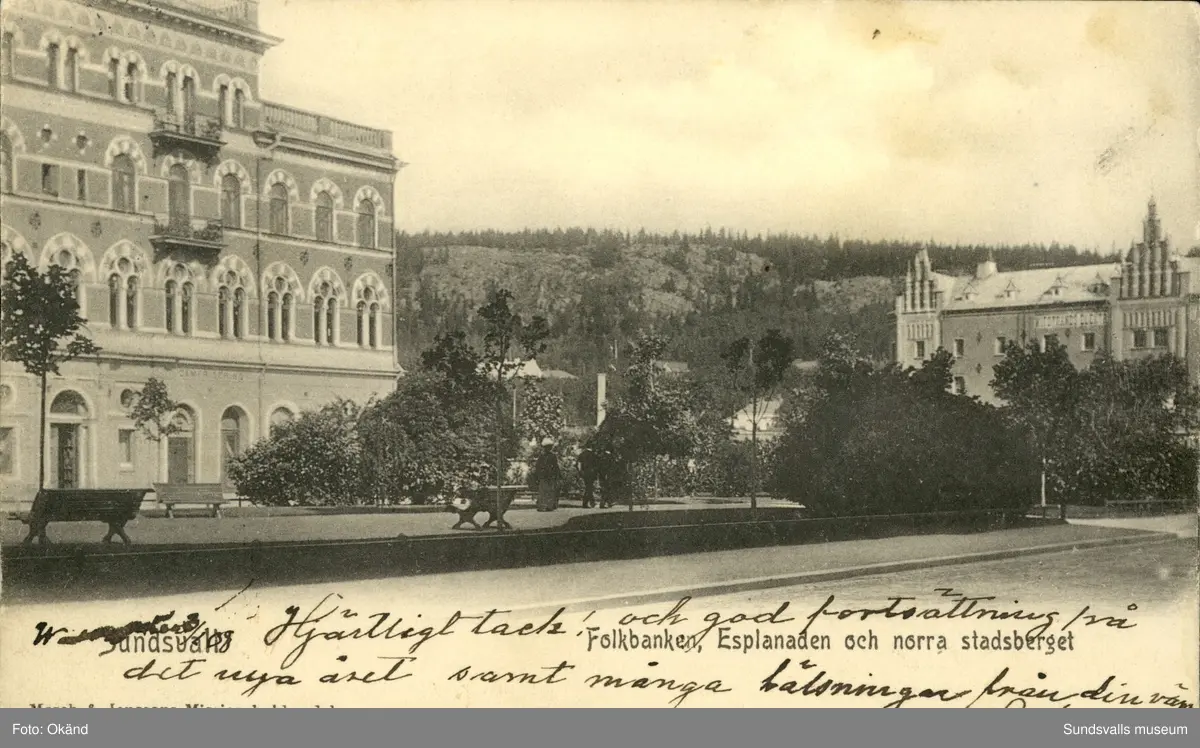 Sundsvall.
Folkbanken, Esplanaden och norra stadsberget
W 3/1 08 Hjärtligt tack! och god fortsättning på
det nya året samt många hälsningar från din vän
Foto: Okänd
Sundsvalls museum